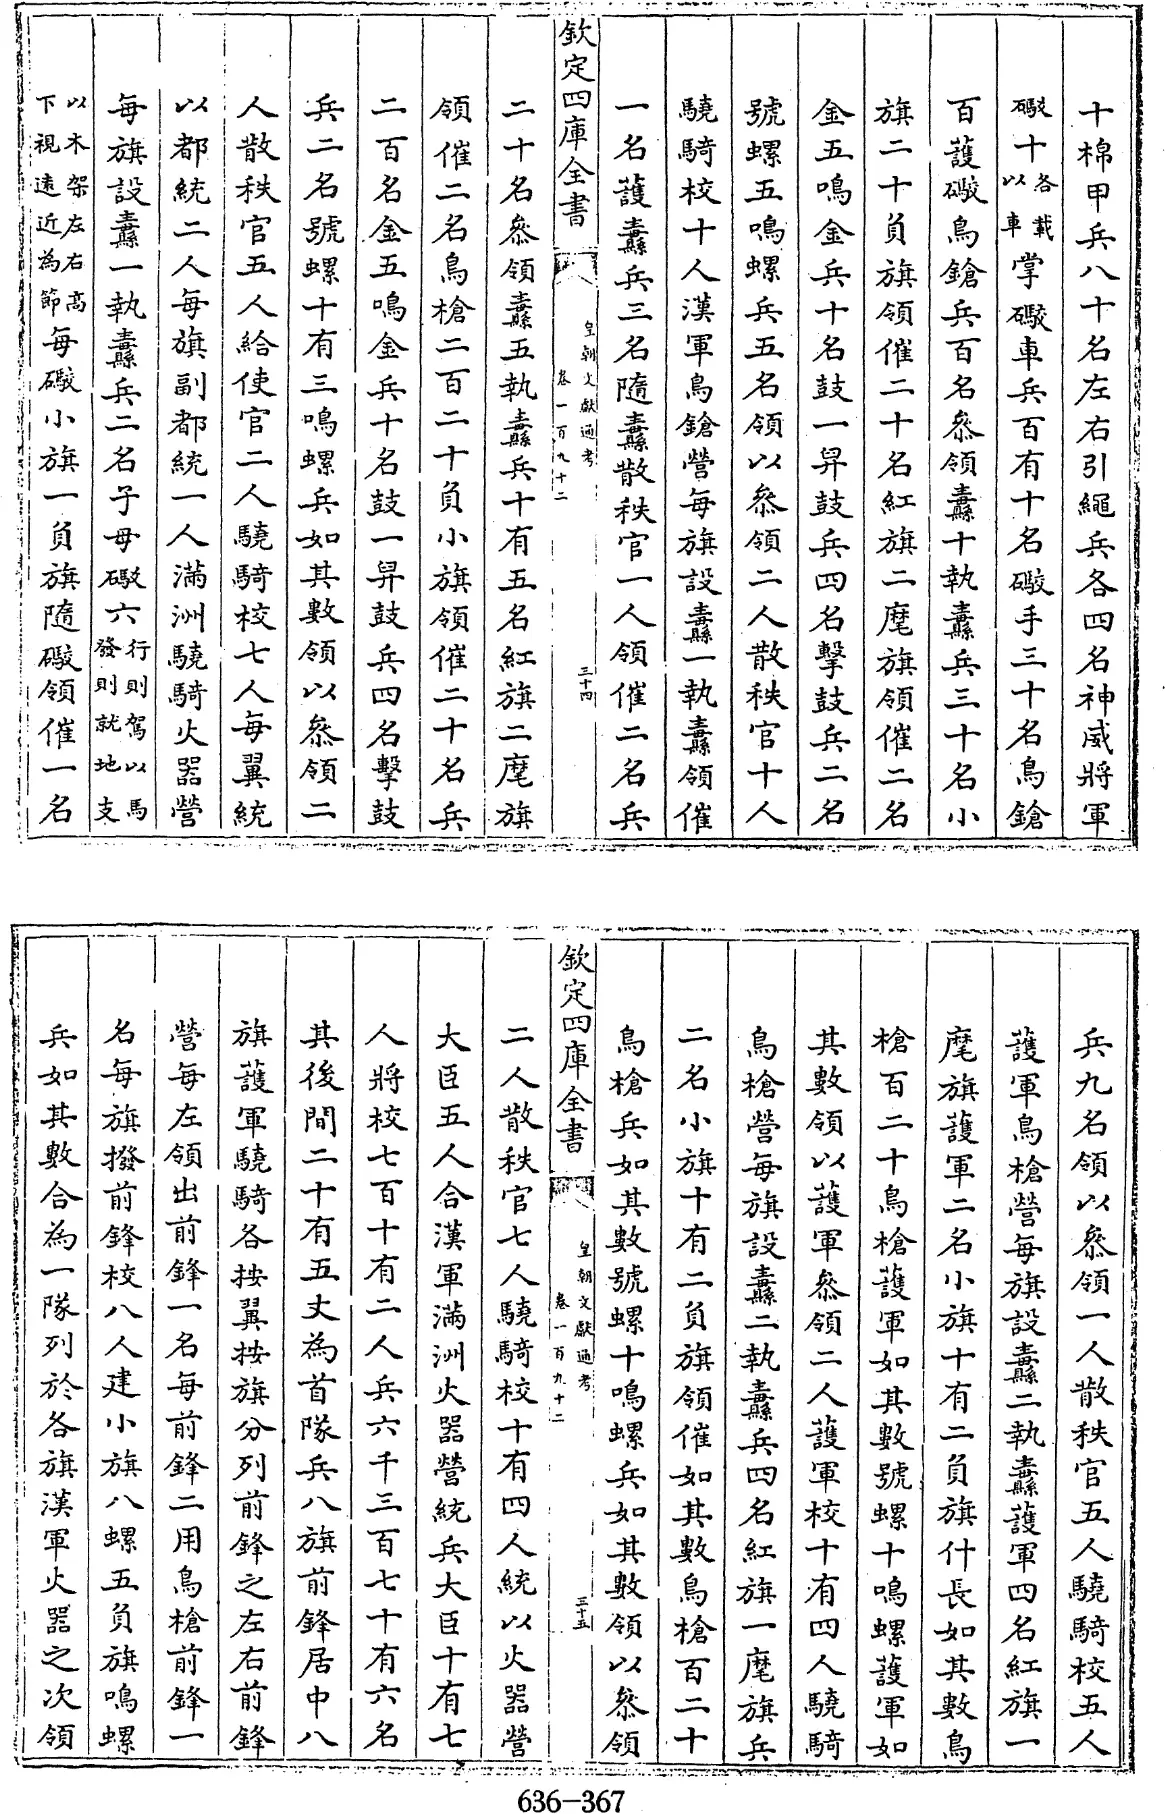 十棉甲兵八十名左右引繩兵各四名神威將軍
礮十各載以車掌礮車兵百有十名礮手三十名鳥鎗
百護礮鳥鎗兵百名叅領纛十執纛兵三十名小
旗二十負旗領催二十名紅旗二麾旗領催二名
金五鳴金兵十名鼓一舁鼓兵四名擊鼓兵二名
號螺五鳴螺兵五名領以叅領二人散秩官十人
驍騎校十人漢軍鳥鎗營每旗設纛一執纛領催
一名護纛兵三名隨纛散秩官一人領催二名兵
欽定四庫全書
皇朝文獻通考
卷一百九十二
三十四
二十名叅領纛五執纛兵十有五名紅旗二麾旗
領催二名鳥槍二百二十負小旗領催二十名兵
二百名金五鳴金兵十名鼓一舁鼓兵四名擊鼓
兵二名號螺十有三鳴螺兵如其數領以叅領二
人散秩官五人給使官二人驍騎校七人每翼統
以都統二人每旗副都統一人滿洲驍騎火器營
每旗設纛一執纛兵二名子母礮六行則駕以馬發則就地支
以木架左右高下視遠近為節每礮小旗一負旗隨礮領催一名
兵九名領以叅領一人散秩官五人驍騎校五人
護軍鳥槍營每旗設纛二執纛護軍四名紅旗一
麾旗護軍二名小旗十有二負旗什長如其數鳥
槍百二十鳥槍護軍如其數號螺十鳴螺護軍如
其數領以護軍叅領二人護軍校十有四人驍騎
鳥槍營每旗設纛二執纛兵四名紅旗一麾旗兵
二名小旗十有二負旗領催如其數鳥槍百二十
鳥槍兵如其數號螺十鳴螺兵如其數領以叅領
欽定四庫全書
皇朝文獻通考
卷一百九十二
三十五
二人散秩官七人驍騎校十有四人統以火器營
大臣五人合漢軍滿洲火器營統兵大臣十有七
人將校七百十有二人兵六千三百七十有六名
其後間二十有五丈為首隊兵八旗前鋒居中八
旗護軍驍騎各按翼按旗分列前鋒之左右前鋒
營每左領出前鋒一名每前鋒二用鳥槍前鋒一
名每旗撥前鋒校八人建小旗八螺五負旗鳴螺
兵如其數合為一隊列於各旗漢軍火器之次領
636-367